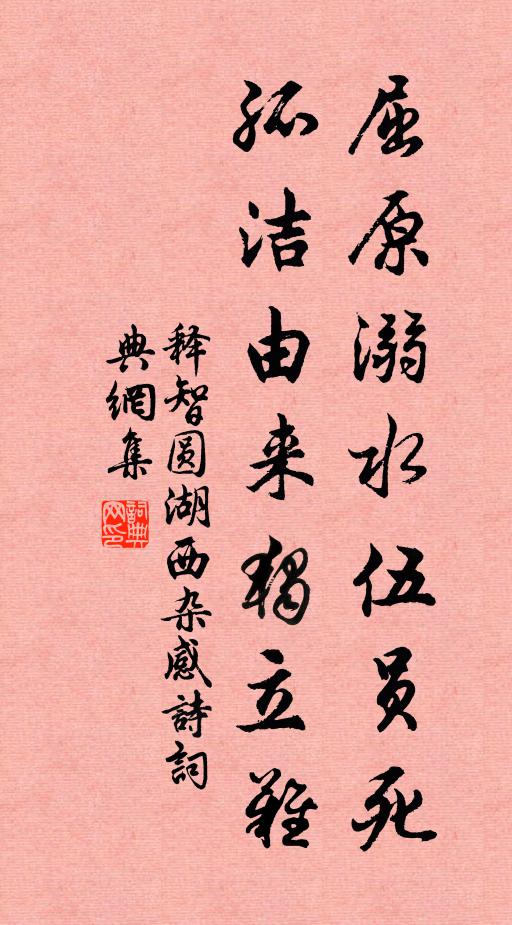 屈原溺水伍员死
孤洁由来独立难
释智圆湖西杂感詩詞
典網集
詞典
网印